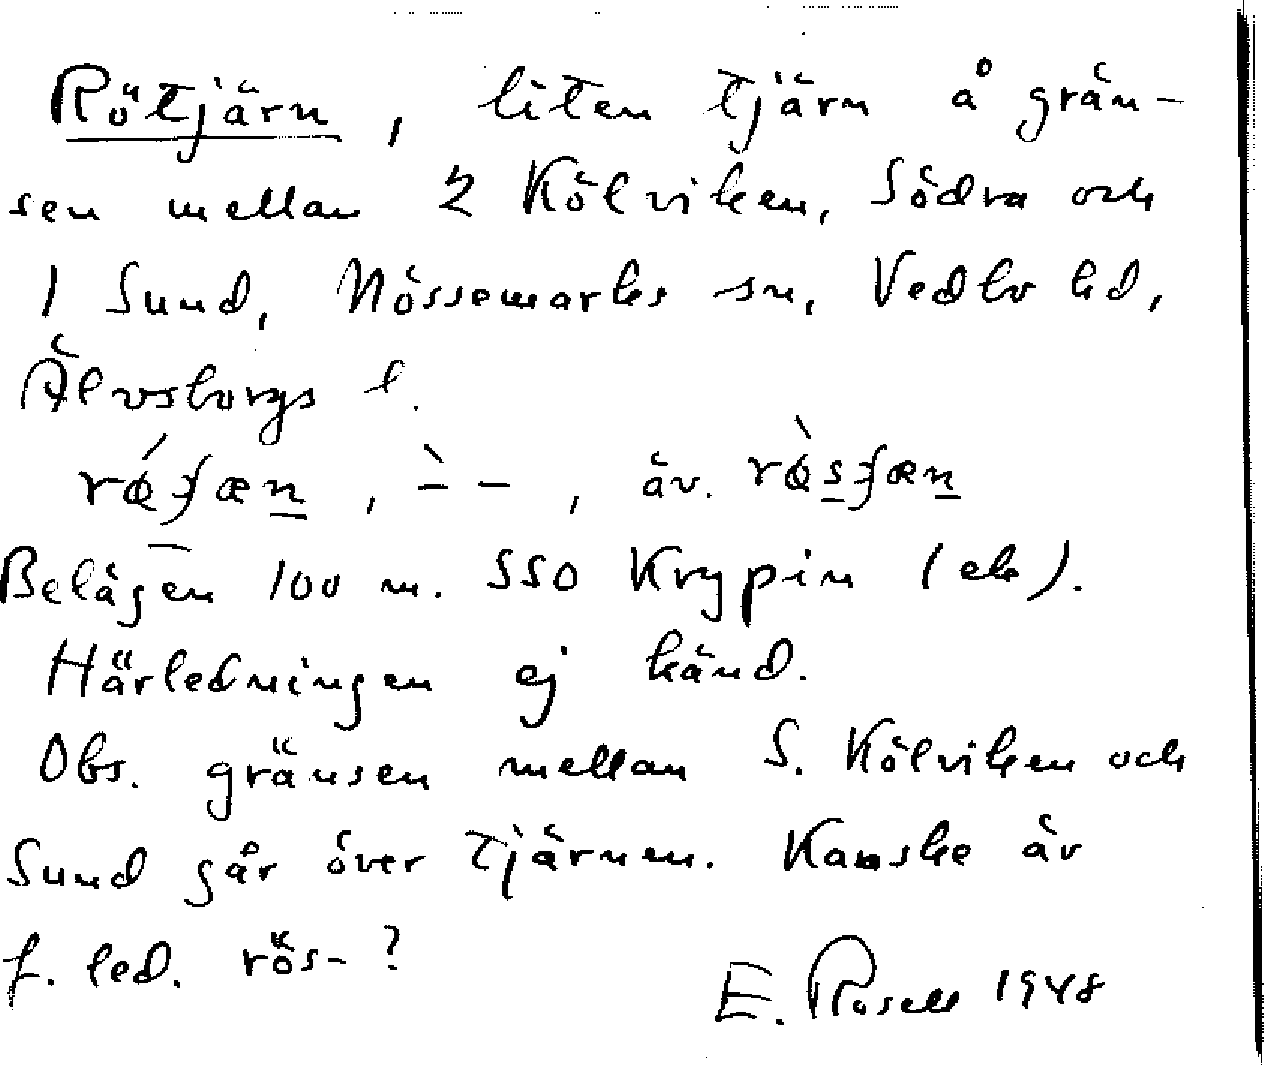 Rötjärn, liten tjärn å grän-
sen mellan 2 Kölviken, Södra och
1 Sund, Nössemarks sn, Vedbo hd,
Älvsborgs l.
, ̀ – – , äv.
Belägen 100 m. SSO Krypin (eh).
Härledningen ej känd.
Obs. gränsen mellan S. Kölviken och
Sund går över tjärnen. Kanske är
f. led. rös- ?
E. Rosell 1948